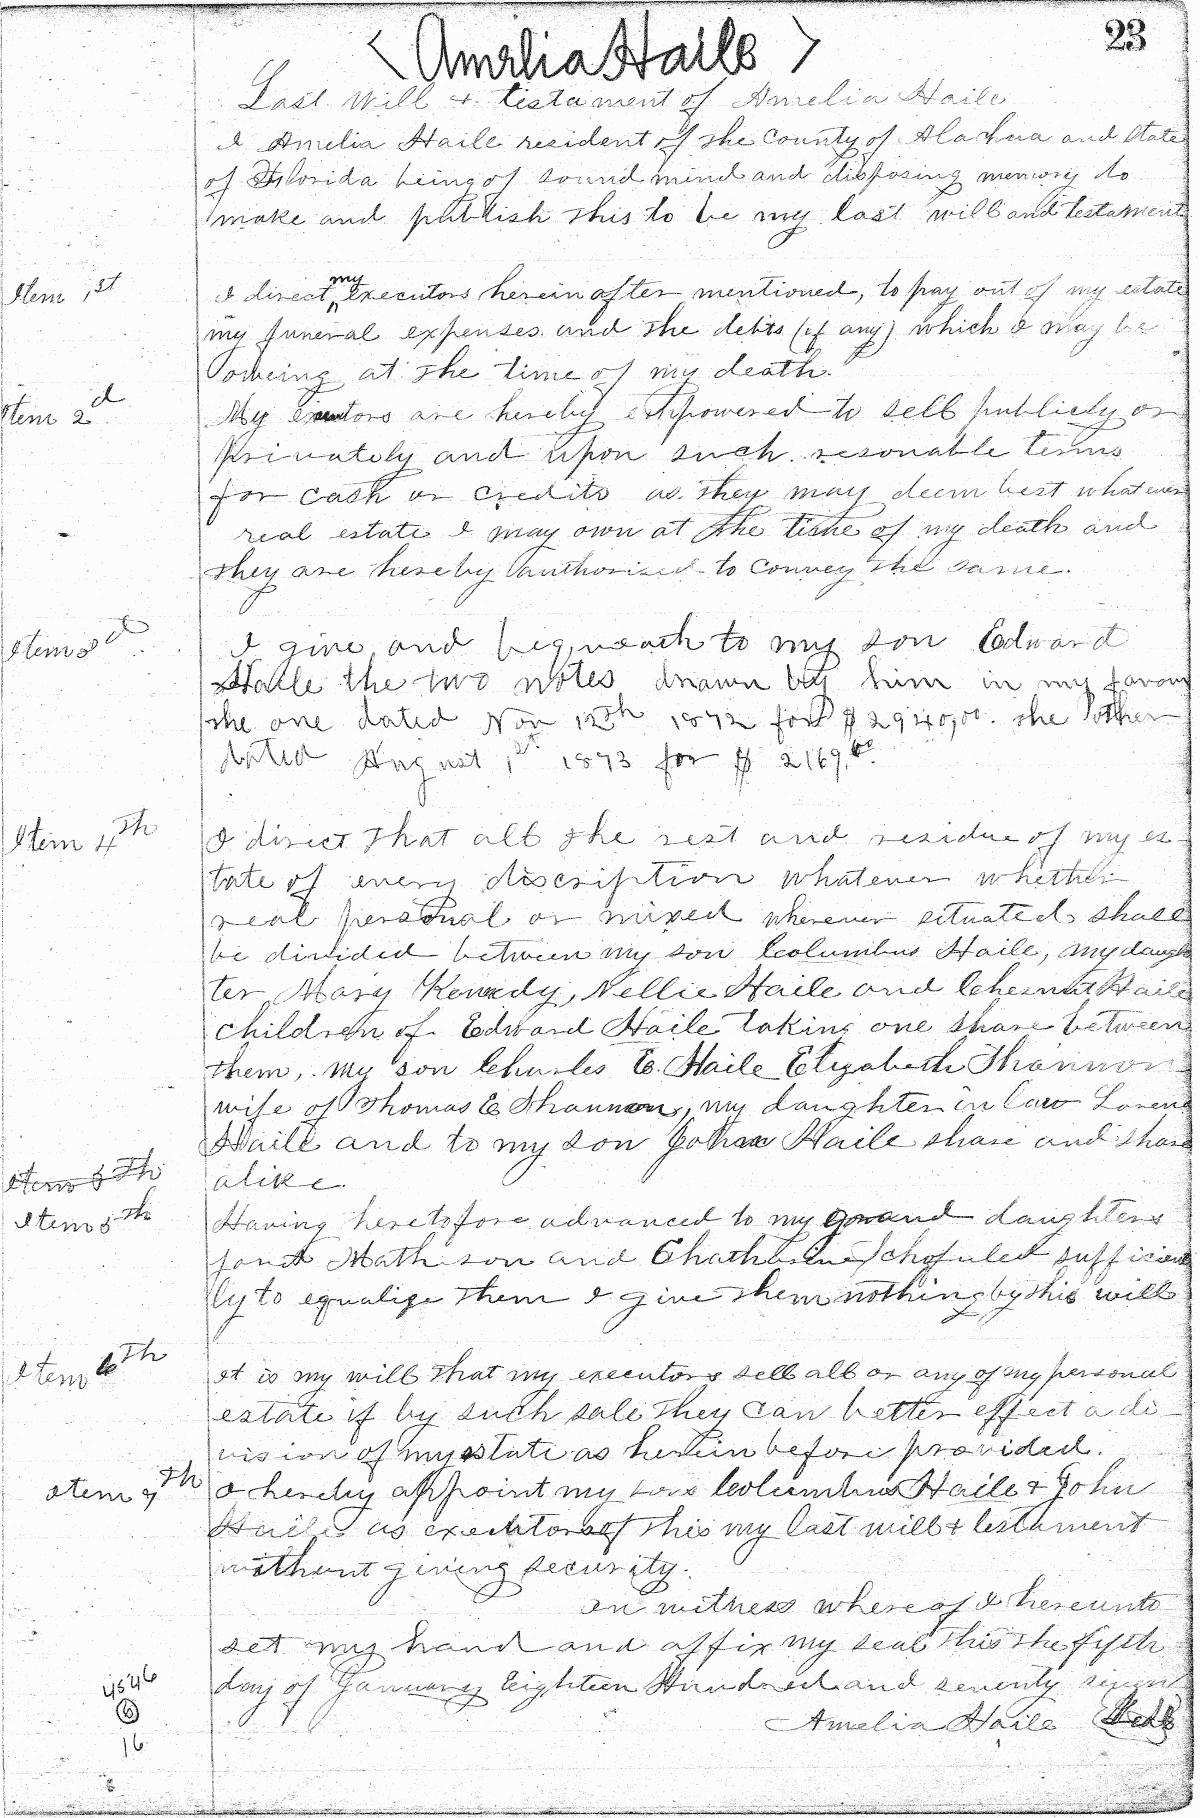 23
< Amelia Haile >
Last Will & testament of Amelia Haile
I Amelia Haile resident of the County of Alachua and State
of Florida being of sound mind and disposing memory do
make and publish this to be my last will and testament
Item 1st I direct my executors herein after mentioned, to pay out of my estate
my funeral expenses and the debts (if any) which I may be
oweing at the time of my death.
Item 2d My executors are hereby empowered to sell publicly or
privately and upon such resonable terms
for cash or credits as they may deem best whatever
real estate I may own at the time of my death and
they are hereby authorised to convey the same.
Item 3d I give and bequeath to my son Edward
Haile the two notes drawn by him in my favour
the one dated Nov 12th 1872 for $2940,00. the other
dated August 1st 1873 for $ 2169.
Item 4th I direct that all the rest and residue of my es-
tate of every discription whatever whether
real personal or mixed wherever situated shall
be divided between my son Columbus Haile, my daugh
ter Mary Kenedy, Nellie Haile and Chesnut Haile
children of Edward Haile taking one share between
them, my son Charles E. Haile Elizabeth Shannon
wife of Thomas E Shannon, my daughter in law Lorena
Haile and to my son John Haile share and share
Item 5th
alike.
Item 5th Having heretofore advanced to my grand daughters
Mathison and sufficient
ly to equalize them I give them nothing by this will
Item 6th It is my will that my executors sell all or any of my personal
estate if by such sale they can better effect a di-
vision of my estate as herein before provided.
Item 7th I hereby appoint my sons Columbus Haile & John
Haile as executors of this my last will & testament
without giving security.
In witness whereof I hereunto
set my hand and affix my seal this the fifth
day of January Eighteen Hundred and seventy seven
Amelia Haile Seal
4546
6
16